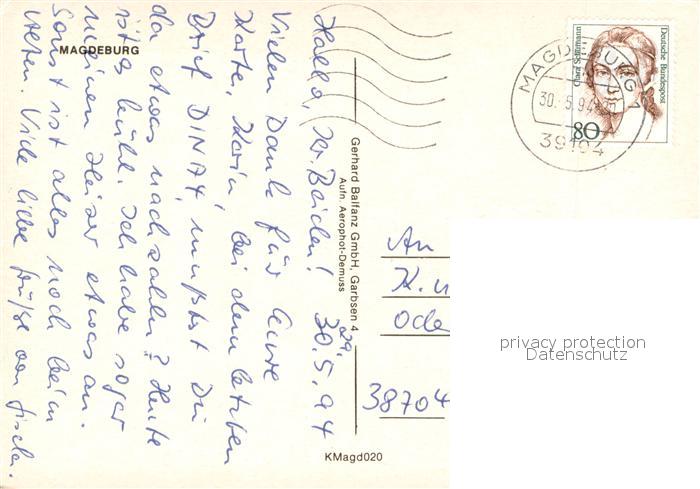 MAGDEBURG
Hallo, Ihr Beiden! 29.
30.5.94
Vielen Dank für Eure
Karte. Karin, bei dem letzten
Brief DINA4, mußtest Du
da etwas nachzahlen? Heute
ist es kühl. Ich habe sogar
meinen Heizer etwas an.
Sonst ist alles noch beim
Alten. Viele liebe Grüße von
Gerhard Balfanz GmbH, Garbsen 4
Aufn. Aerophot-Demuss
KMagd020
Deutsche Bundespost
80
MAGDEBURG 1
30.-5.94
39104
An
K. u
ode
38704
privacy protection
Datenschutz